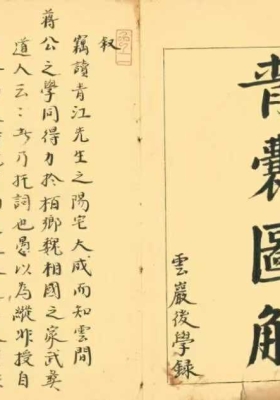 青囊圖解
雲巖後學録
叙
竊讀青江先生之陽宅大成而知雲間
蔣公之學同得力於柏鄉魏相國之家武夷
道人云云者乃托詞也愚以為縱非授自